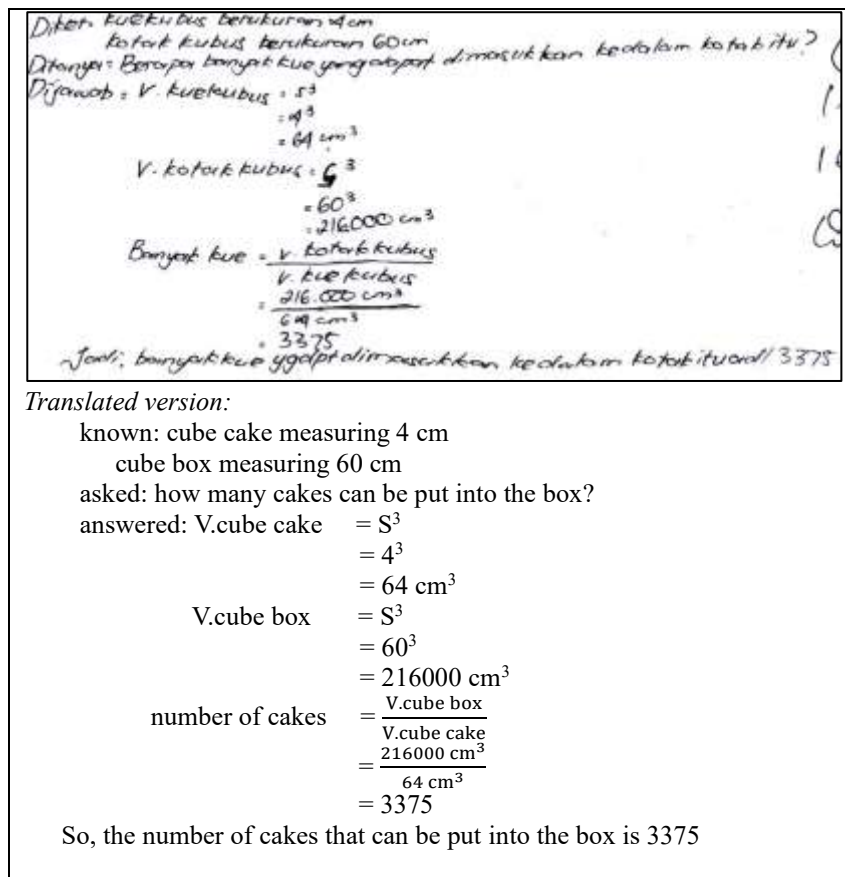 Diket: kue kubus berukuran 4 cm
kotak kubus berukuran 60 cm
Ditanya: Berapa banyak kue yang dapat dimasukkan kedalam kotak itu?
Dijawab: V. kue kubus = s³
= 4³
= 64 cm³
V. kotak kubus = s³
= 60³
= 216000 cm³
Banyak kue = V. kotak kubus
V. kue kubus
= 216.000 cm³
64 cm³
= 3375
Jadi, banyak kue yg dpt dimasukkan kedalam kotak itu adl/ 3375
Translated version:
known: cube cake measuring 4 cm
cube box measuring 60 cm
asked: how many cakes can be put into the box?
answered: V.cube cake = S³
= 4³
= 64 cm³
V.cube box = S³
= 60³
= 216000 cm³
number of cakes = V.cube box
V.cube cake
= 216000 cm³
64 cm³
= 3375
So, the number of cakes that can be put into the box is 3375